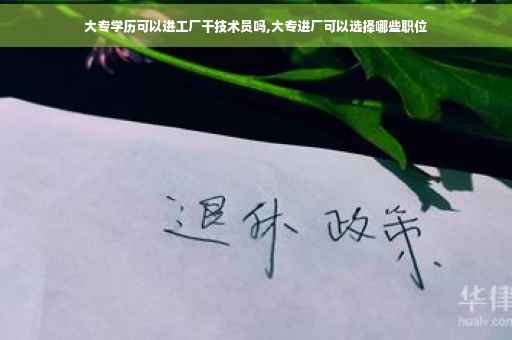 大专学历可以进工厂干技术员吗,大专进厂可以选择哪些职位
退休 政策
华律
hualv.com